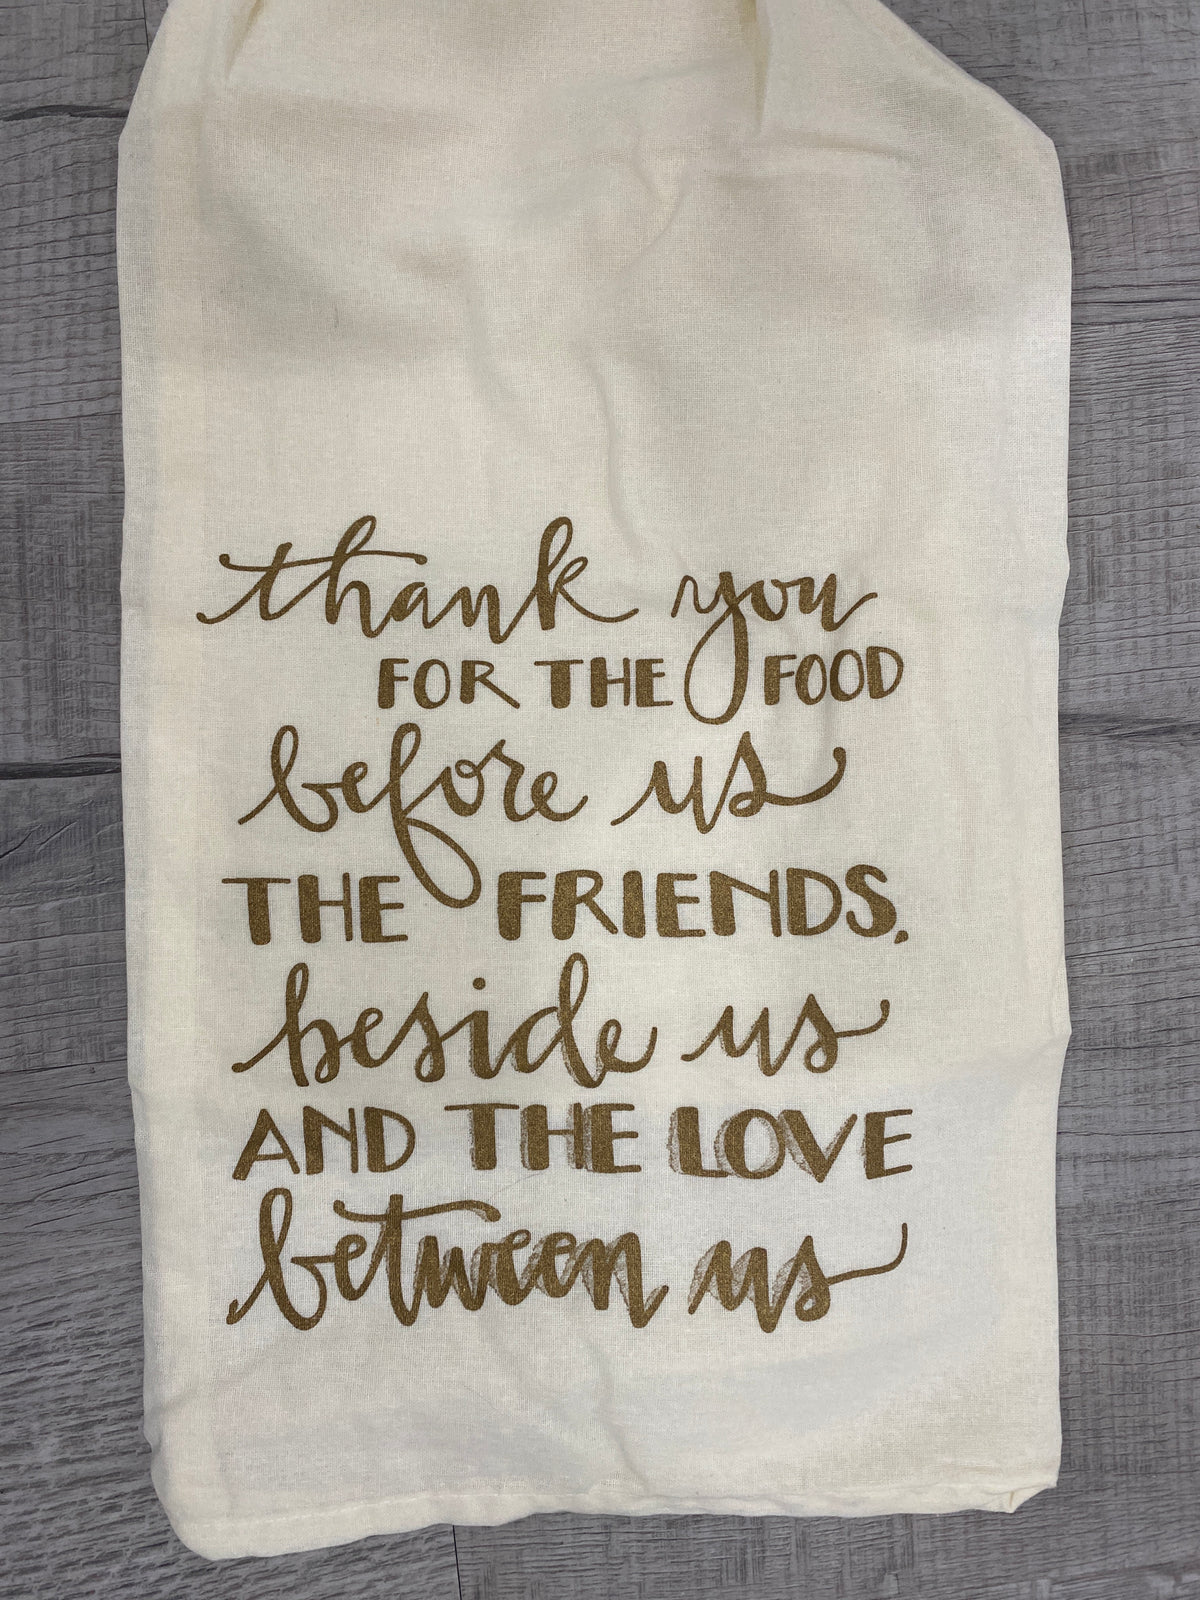 thank you
FOR THE FOOD
before us
THE FRIENDS,
beside us
AND THE LOVE
between us